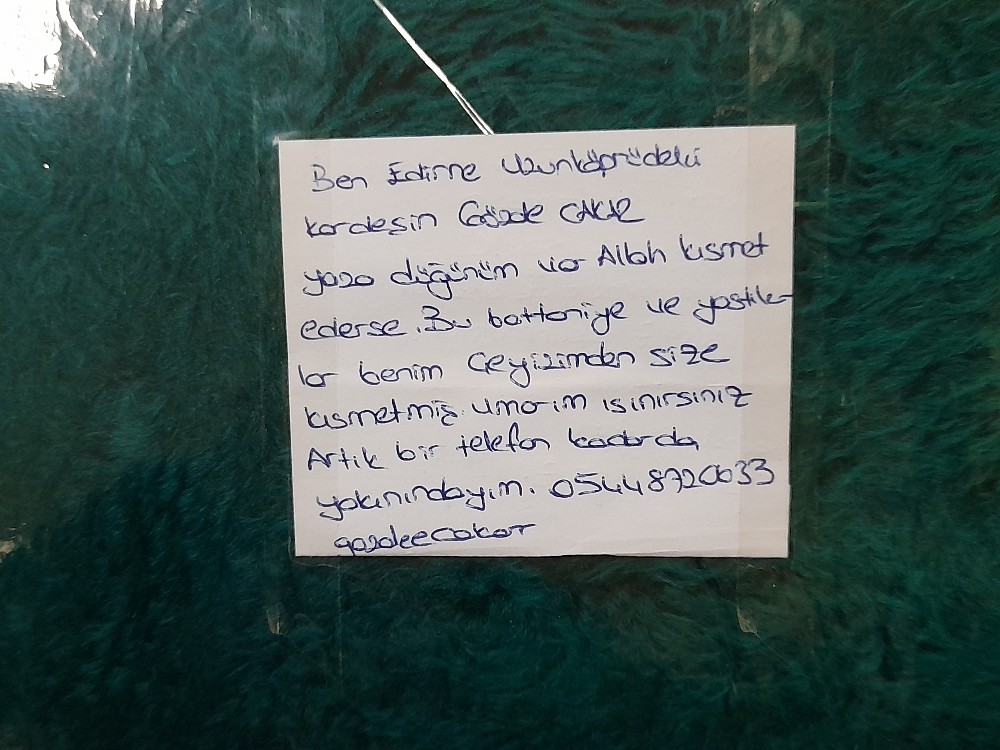 Ben Edirne Uzunköprüdeki
kardeşin Gözde ÇAKAR
yaza düğünüm var Allah kısmet
ederse. Bu battaniye ve yastıkla-
lar benim Çeyizimden size
kısmetmiş. umarım ısınırsınız
Artık bir telefon kadarda
yakınındayım. 05448720633
gozdeecakar